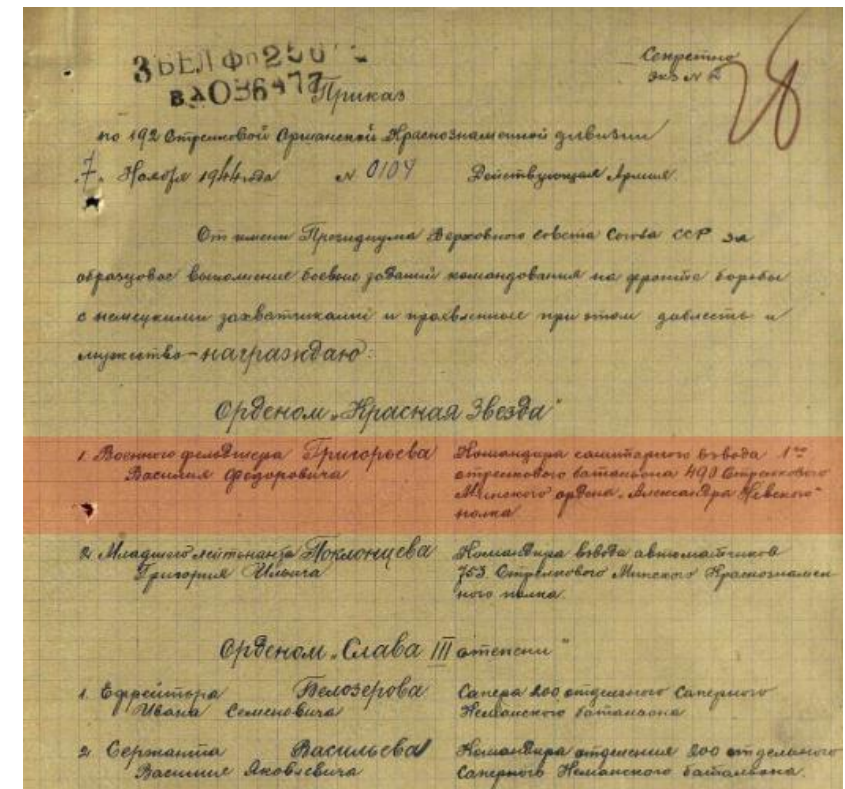 3 БЕЛ ФР
Секретно
экз №
28
Приказ
по 192 Стрелковой Оршанской Краснознаменной дивизии
"7" Ноября 1944 года № 0104 Действующая Армия
От имени Президиума Верховного совета Союза ССР за
образцовое выполнение боевых заданий командования на фронте борьбы
с немецкими захватчиками и проявленные при этом доблесть и
мужество - награждаю:
Орденом „Красная Звезда"
1. Военного фельдшера Григорьева Командира санитарного взвода 1го
Василия Федоровича стрелкового батальона 490 Стрелкового
Минского ордена „Александра Невского"
полка.
2. Младшего лейтенанта Поклонцева Командира взвода автоматчиков
Григория Ильича 753 Стрелкового Минского Краснознамен
ного полка.
Орденом „Слава III степени"
1. Ефрейтора Белозерова Сапера 200 отдельного Саперного
Ивана Семеновича Неманского батальона
2. Сержанта Васильева Командира отделения 200 отдельного
Василия Яковлевича Саперного Неманского батальона.